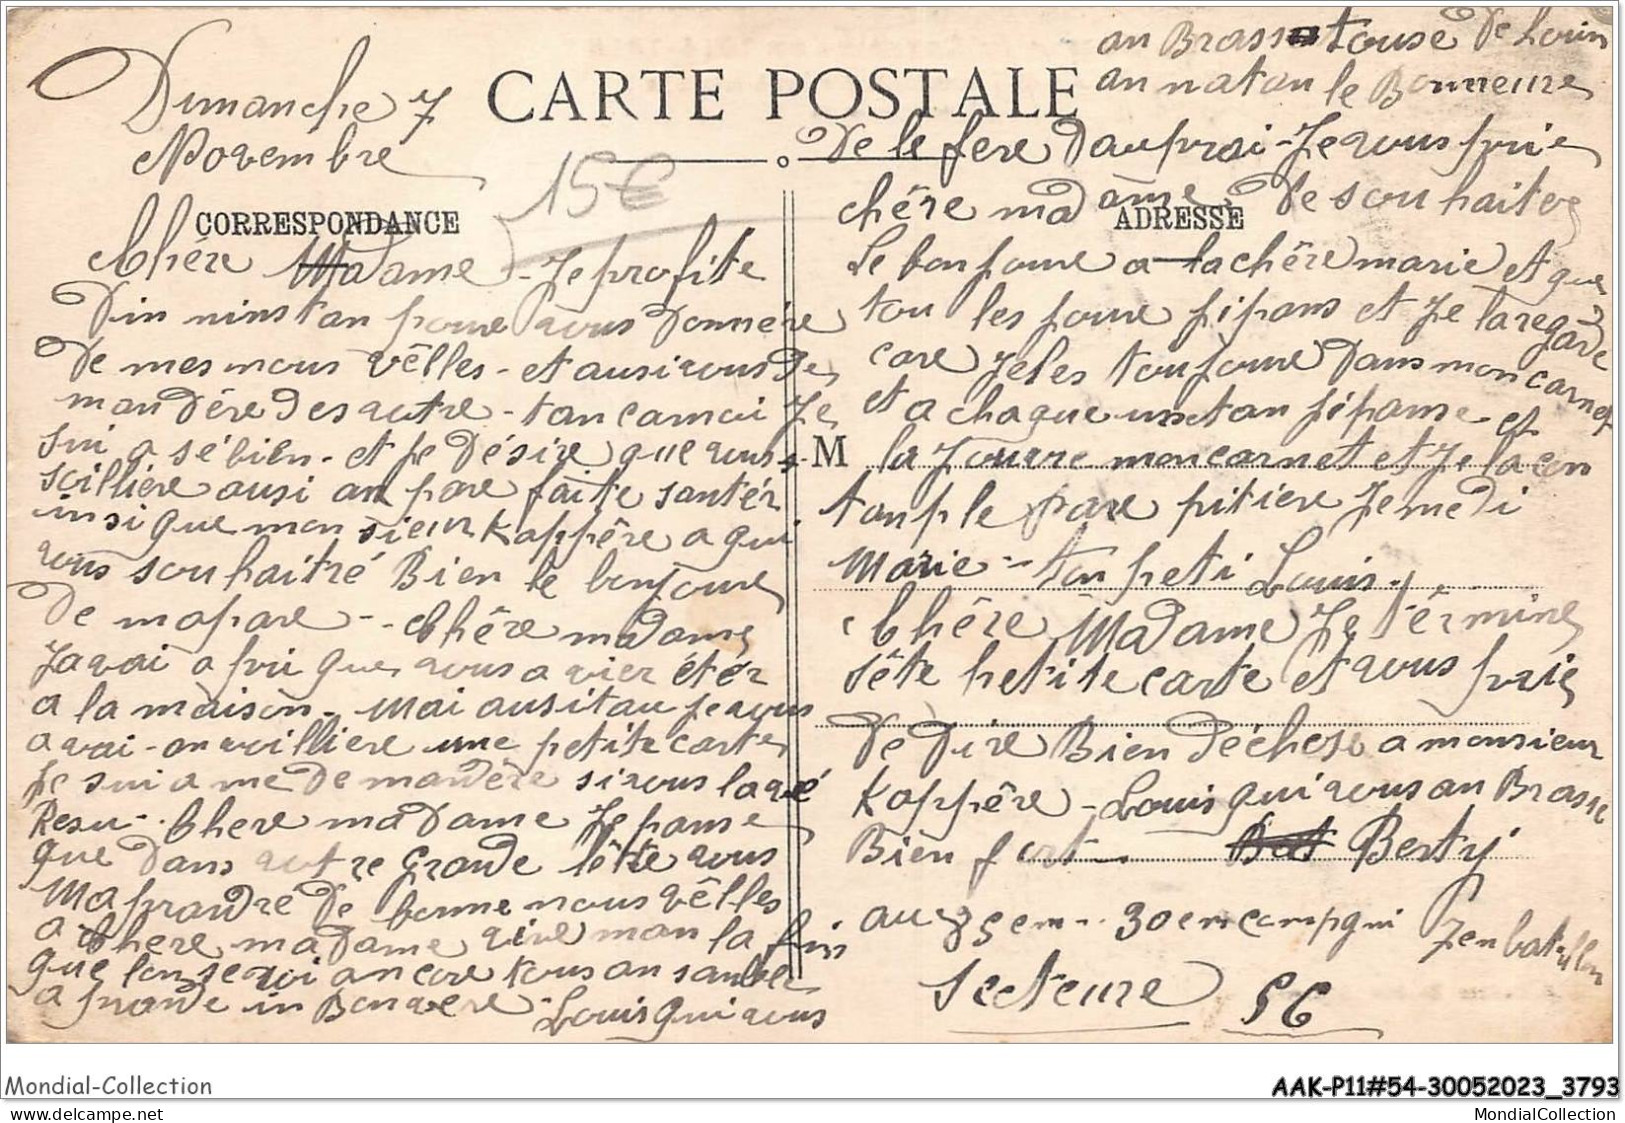 Dimanche 7
Novembre
CARTE POSTALE
15€
CORRESPONDANCE
Chére Madame - Je profite
Din ninstan poure vous Donnére
De mes nous vêlles - et ausi vous de
mandére des votre - tan camoi Je
sui a sé bien - et Je Désire que vous
soilliere ausi an pare faite santér
insi que mon sieur Kappêre a qui
vous souhaitré Bien le bonjoure
De mapare - - Chêre madame
Javai a pri que vous a vier étér
a la maison - Mai ausitau Je vous
avai - anvoilliere une petite carte
Je sui a me demandère si vous lavé
Resu - . Chere madame Je panse
que Dans votre Grande lêtre vous
Maprandre De bonne nous vêlles
a Chere madame vive man la fin
que lon se voi ancore tous ansanble
a prande in Banvere - Louis qui vous
an Brasse touse De Louin
an natan le Bonneure
De le fere Dauprai - Je vous prie
chêre madame De souhaiter
ADRESSE
Le bonjoure a la chêre marie et que
tou les joure jipans et Je la regarde
care Je les toujoure Dans mon carnet
et a chaque instan jipanse et
M la Jouvre mon carnet et Je la con
tanple pare pitiere Je me di
Marie - ton peti Louis.
Chêre Madame Je términe
sête petite carte et vous prie
De Dire Bien Déchose a monsieur
Kappêre - Louis qui vous an Brasse
Bien fort - Berty
au 95 em - 30 em campgni 7 en batallon
Secteure 56
Mondial-Collection
AAK-P11#54-30052023_3793
MondialCollection